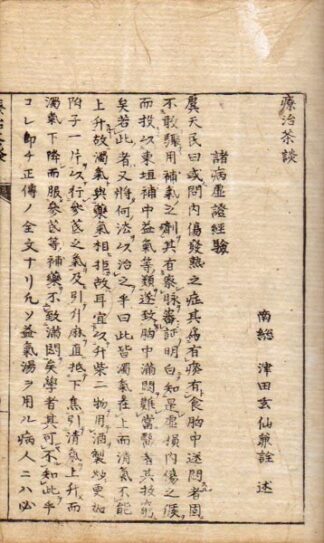 療治茶談
南総 津田玄仙兼詮 述
諸病虚證經驗
虞天民曰或問内傷發熱之症其為有痰有食胸中迷悶者固
不敢驟用補氣之劑其有察脉審証明白知是虚損内傷之候
而投以東垣補中益氣等類遂致胸中滿悶難當醫者其技窮
矣若此者又將何法以治之乎曰此皆濁氣在上而清氣不能
上升故濁氣與藥氣相拒故耳宜以升柴二物用酒製炒更加
附子一片以行參芪之氣及引升麻直抵下焦引清氣上升而
濁氣下降而服參芪等補藥不致滿悶矣學者其可不知此乎
コレ即チ正傳ノ全文ナリ凡ソ益氣湯ヲ用ル病人ニハ必